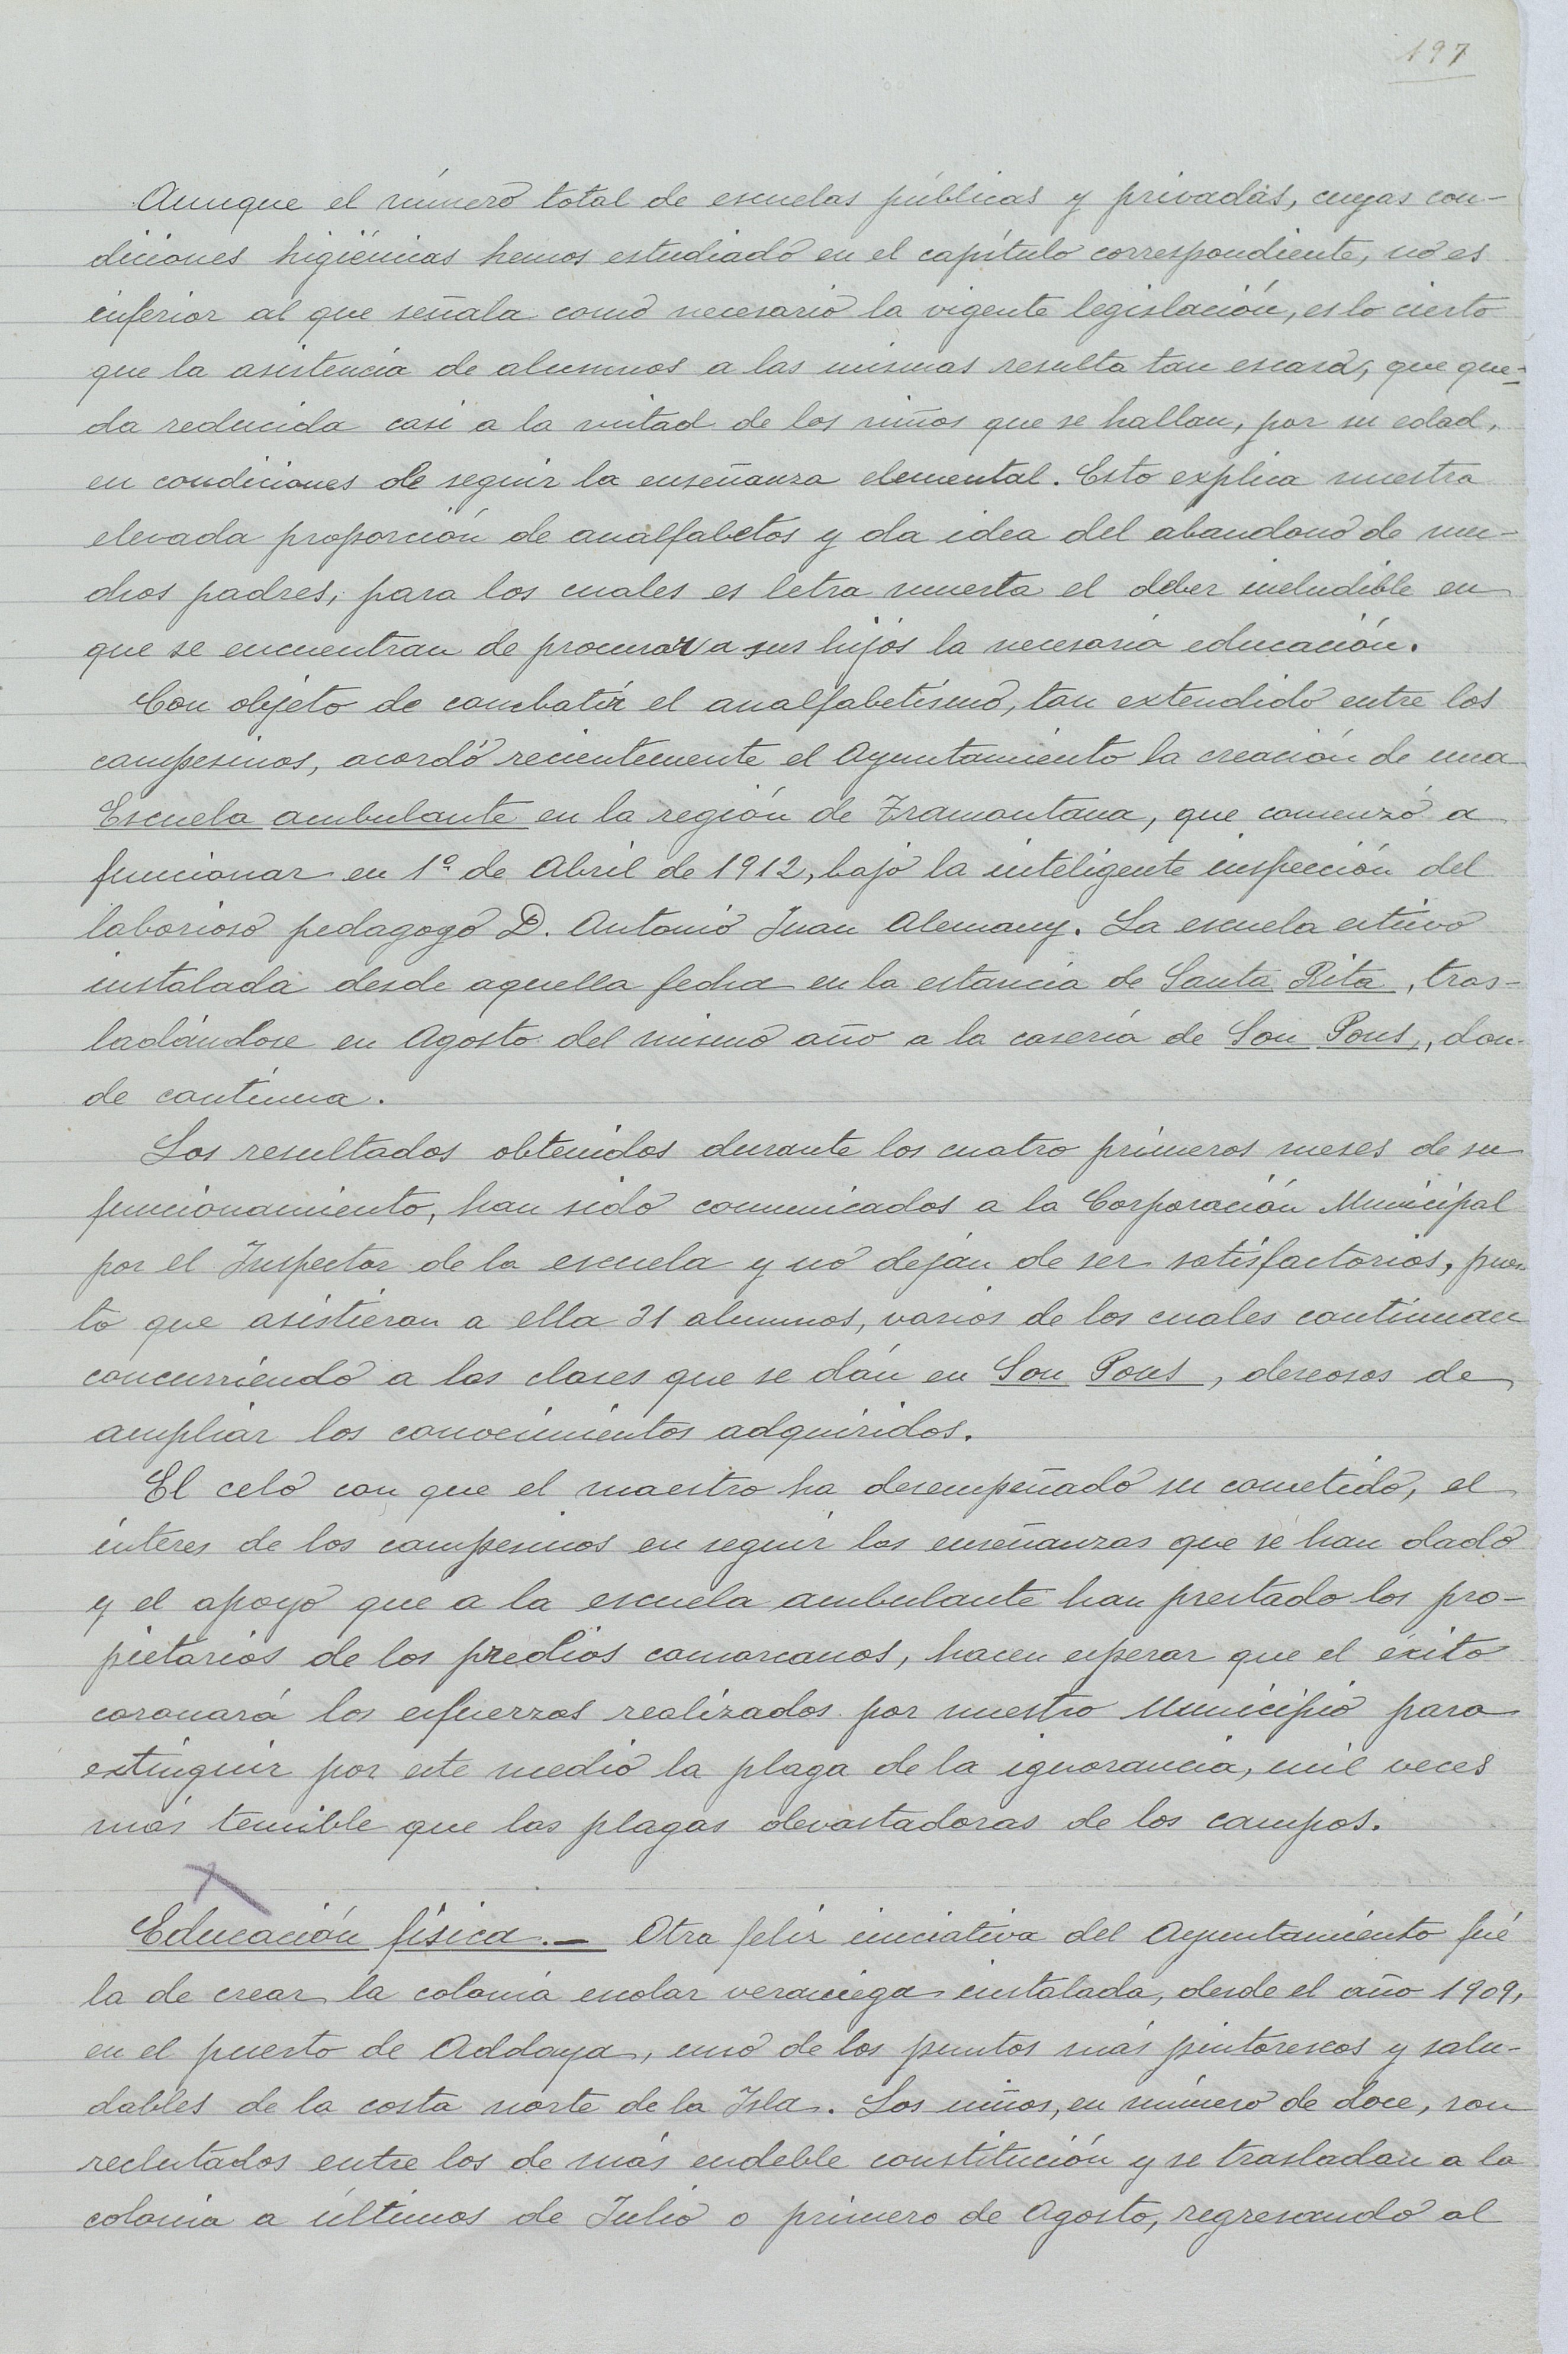 197
Aunque el número total de escuelas públicas y privadas, cuyas con-
diciones higiénicas hemos estudiado en el capítulo correspondiente, no es
inferior al que señala como necesario la vigente legislación, es lo cierto
que la asistencia de alumnos a las mismas resulta tan escasa, que que-
da reducida casi a la mitad de los niños que se hallan, por su edad,
en condiciones de seguir la enseñanza elemental. Esto explica nuestra
elevada proporción de analfabetos y da idea del abandono de mu-
chos padres, para los cuales es letra muerta el deber ineludible en
que se encuentran de procurar a sus hijos la necesaria educación.
Con objeto de combatir el analfabetismo, tan extendido entre los
campesinos, acordó recientemente el Ayuntamiento la creación de una
Escuela ambulante en la región de Tramontana, que comenzó a
funcionar en 1º de Abril de 1912, bajo la inteligente inspección del
laborioso pedagogo D. Antonio Juan Alemany. La escuela estuvo
instalada desde aquella fecha en la estancia de Santa Rita, tras-
ladándose en Agosto del mismo año a la casería de Son Pons, don-
de continua.
Los resultados obtenidos durante los cuatro primeros meses de su
funcionamiento, han sido comunicados a la Corporación Municipal
por el Inspector de la escuela y no dejan de ser satisfactorios, pues-
to que asistieron a ella 31 alumnos, varios de los cuales continuan
concurriendo a las clases que se dán en Son Pons, deseosos de
ampliar los conocimientos adquiridos.
El celo con que el maestro ha desempeñado su cometido, el
interes de los campesinos en seguir las enseñanzas que se han dado
y el apoyo que a la escuela ambulante han prestado los pro-
pietarios de los predios comarcanos, hacen esperar que el éxito
coronará los esfuerzos realizados por nuestro Municipio para
extinguir por este medio la plaga de la ignorancia, mil veces
más temible que las plagas devastadoras de los campos.
Educación física.— Otra feliz iniciativa del Ayuntamiento fué
la de crear la colonia escolar veraniega instalada, desde el año 1909,
en el puerto de Addaya, uno de los puntos más pintorescos y salu-
dables de la costa norte de la Isla. Los niños, en número de doce, son
reclutados entre los de más endeble constitución y se trasladan a la
colonia a últimos de Julio o primero de Agosto, regresando al